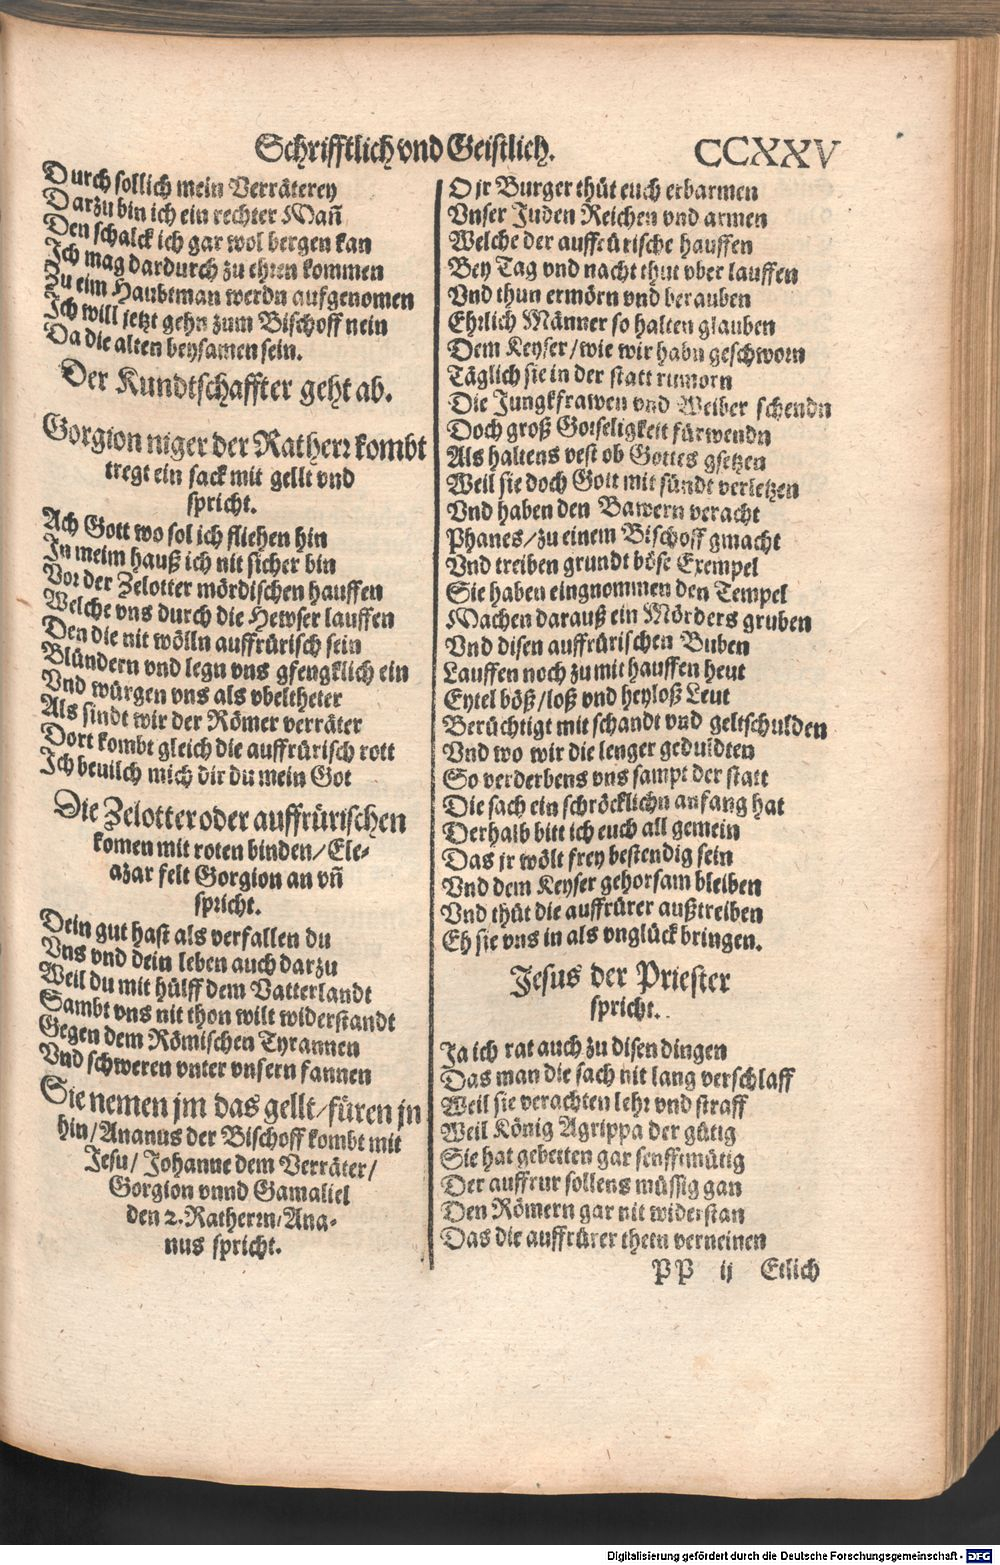 Schrifftlich vnd Geistlich. CCXXV
Durch sollich mein Verräterey
Darzu bin ich ein rechter Mañ
Den schalck ich gar wol bergen kan
Ich mag dardurch zu ehren kommen
Zu eim Haubtman werdn aufgenomen
Ich will jetzt gehn zum Bischoff nein
Da die alten beysamen sein.
Der Kundtschaffter geht ab.
Gorgion niger der Ratherr kombt
tregt ein sack mit gellt vnd
spricht.
Ach Gott wo sol ich fliehen hin
In meim hauß ich nit sicher bin
Vor der Zelotter mördischen hauffen
Welche vns durch die Hewser lauffen
Den die nit wölln auffrürisch sein
Blündern vnd legn vns gfengklich ein
Vnd würgen vns als vbeltheter
Als sindt wir der Römer verräter
Dort kombt gleich die auffrürisch rott
Ich beuilch mich dir du mein Got
Die Zelotter oder auffrürischen
komen mit roten binden/ Ele-
azar felt Gorgion an vñ
spricht.
Dein gut hast als verfallen du
Vns vnd dein leben auch darzu
Weil du mit hülff dem Vatterlandt
Sambt vns nit thon wilt widerstandt
Gegen dem Römischen Tyrannen
Vnd schweren vnter vnsern fannen
Sie nemen jm das gellt/ füren jn
hin/ Ananus der Bischoff kombt mit
Jesu/ Johanne dem Verräter/
Gorgion vnnd Gamaliel
den 2. Ratherrn/ Ana-
nus spricht.
O jr Burger thüt euch erbarmen
Vnser Juden Reichen vnd armen
Welche der auffrürische hauffen
Bey Tag vnd nacht thut vber lauffen
Vnd thun ermörn vnd berauben
Ehrlich Männer so halten glauben
Dem Keyser/ wie wir habn geschworn
Täglich sie in der statt rumorn
Die Jungkfrawen vnd Weiber schendn
Doch groß Gotseligkeit fürwendn
Als haltens vest ob Gottes gsetzen
Weil sie doch Gott mit sündt verletzen
Vnd haben den Bawern veracht
Phanes/ zu einem Bischoff gmacht
Vnd treiben grundt böse Exempel
Sie haben eingnommen den Tempel
Machen darauß ein Mörders gruben
Vnd disen auffrürischen Buben
Lauffen noch zu mit hauffen heut
Eytel böß/ loß vnd heyloß Leut
Berüchtigt mit schandt vnd geltschulden
Vnd wo wir die lenger geduldten
So verderbens vns sampt der statt
Die sach ein schröcklichn anfang hat
Derhalb bitt ich euch all gemein
Das jr wölt frey bestendig sein
Vnd dem Keyser gehorsam bleiben
Vnd thüt die auffrürer außtreiben
Eh sie vns in als vnglück bringen.
Jesus der Priester
spricht.
Ja ich rat auch zu disen dingen
Das man die sach nit lang verschlaff
Weil sie verachten lehr vnd straff
Weil König Agrippa der gütig
Sie hat gebetten gar senfftmütig
Der auffrur sollens müssig gan
Den Römern gar nit widerstan
Das die auffrürer thetn verneinen
PP ij Etlich
Digitalisierung gefördert durch die Deutsche Forschungsgemeinschaft - DFG